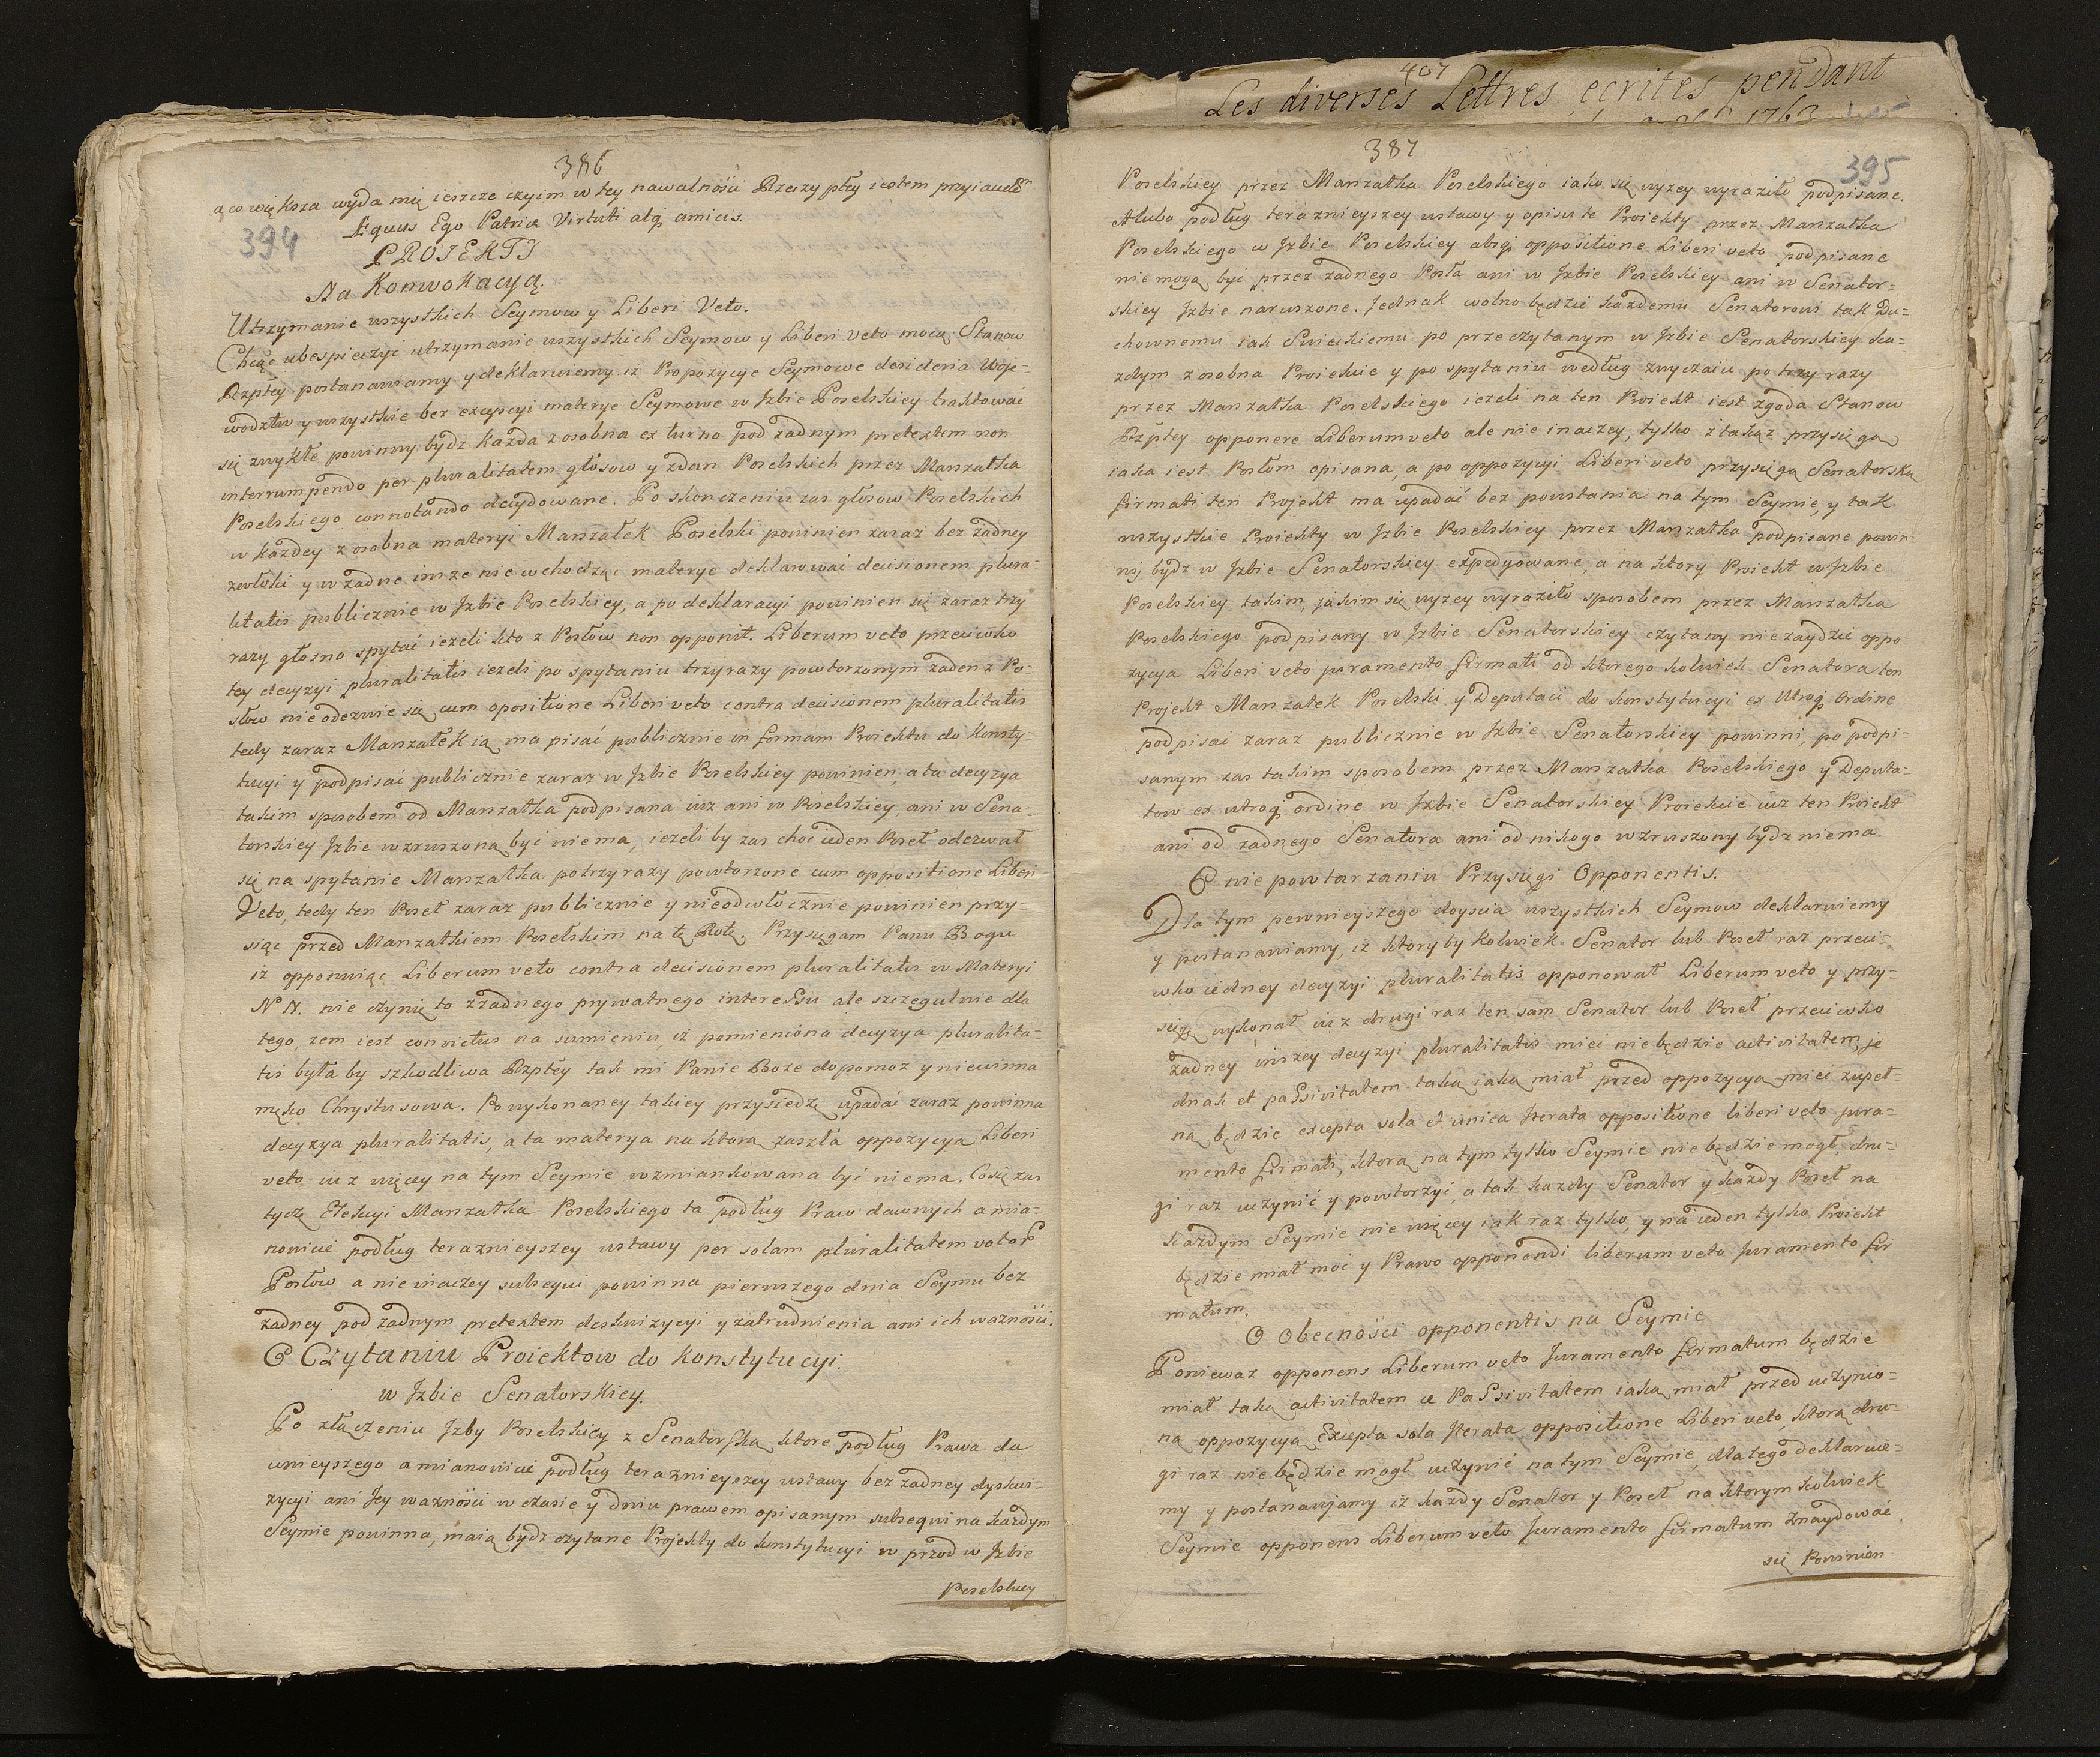 386
a co większa wyda mię ieszcze czyim w tey nawalności Rzeczyptey iestem przyiacielem
Equus Ego Patriæ Virtuti atq amicis.
394
PROIEKTJ
Na Konwokacyą.
Utrzymanie wszystkich Seymow y Liberi Veto.
Chcąc ubespieczyć utrzymanie wszystkich Seymow y Liberi veto mocą Stanow
Rzptey postanawiamy y deklaruiemy iż Propozycye Seymowe desideria Woje-
wodztw y wszystkie bez excepcyi materye Seymowe w Jzbie Poselskiey traktować
się zwykłe powinny bydz każda z osobna ex turno pod żadnym pretextem non
interrumpendo per pluralitatem głosow y zdan Poselskich przez Marszałka
Poselskiego connotando decydowane. Po skonczeniu zas głosow Poselskich
w każdey z osobna materyi Marszałek Poselski powinien zaraz bez żadney
zwłoki y w żadne insze nie wchodząc materye deklarować decisionem plura-
litatis publicznie w Jzbie Poselskiey, a po deklaracyi powinien się zaraz trzy
razy głosno spytać ieżeli kto z Posłow non opponit. Liberum veto przeciwko
tey decyzyi pluralitatis ieżeli po spytaniu trzy razy powtorzonym żaden z Po-
słow nie odezwie się cum opositione Liberi veto contra decisionem pluralitatis
tedy zaraz Marszałek ią ma pisać publicznie in formam Proiektu do Konsty-
tucyi y podpisać publicznie zaraz w Jzbie Poselskiey powinien, a ta decyzya
takim sposobem od Marszałka podpisana iuz ani w Poselskiey, ani w Sena-
torskiey Jzbie wzruszona być nie ma, ieżeli by zas choć ieden Poseł odezwał
się na spytanie Marszałka po trzy razy powtorzone cum oppositione Liberi
Veto, tedy ten Poseł zaraz publicznie y nieodwłocznie powinien przy-
siąc przed Marszałkiem Poselskim na tę Rotę. Przysięgam Panu Bogu
iż opponuiąc Liberum veto contra decisionem pluralitatis w Materyi
N N. nie czynię to zżadnego prywatnego interessu ale szczegulnie dla
tego, żem iest convictus na sumieniu, iż pomieniona decyzya pluralita-
tis była by szkodliwa Rzptey tak mi Panie Boże dopomoz y niewinna
męko Chrystusowa. Po wykonaney takiey przysiedze upadać zaraz powinna
decyzya pluralitatis, a ta materya na ktorą zaszła oppozycya Liberi
veto iuz więcey na tym Seymie wzmiankowana być nie ma. Co się zas
tycze Elekcyi Marszałka Poselskiego ta podług Praw dawnych a mia-
nowicie podług teraznieyszey ustawy per solam pluralitatem votor
Posłow a nie inaczey subsequi powinna pierwszego dnia Seymu bez
żadney pod żadnym pretextem deskwizycyi y zatrudnienia ani ich ważności.
O Czytaniu Proiektow do Konstytucyi.
w Jzbie Senatorskiey.
Po złączeniu Jzby Poselskiey z Senatorską ktore podług Prawa da
wnieyszego a mianowicie podług teraznieyszey ustawy bez żadney dyskwi-
zycyi ani Jey ważności w czasie y dniu prawem opisanym subsequi na każdym
Seymie powinna, maią bydz czytane Projekty do konstytucyi w przod w Jzbie
Poselskiey
407
Les diverses Lettres, ecrites pendant
1763
387
395
Poselskiey przez Marszałka Poselskiego iako się wyżey wyraziło podpisane.
Albo podług teraznieyszey ustawy y opisu te Proiekty przez Marszałka
Poselskiego w Jzbie Poselskiey absq oppositione Liberi veto podpisane
nie mogą być przez żadnego Posła ani w Jzbie Poselskiey ani w Senator-
skiey Jzbie naruszone. Jednak wolno będzie każdemu Senatorowi tak Du-
chownemu iak Swieckiemu po przeczytanym w Jzbie Senatorskiey ka-
zdym z osobna Proiekcie y po spytaniu według zwyczaiu po trzy razy
przez Marszałka Poselskiego ieżeli na ten Proiekt iest zgoda Stanow
Rzptey opponere Liberum veto ale nie inaczey, tylko z takąż przysięgą
iaka iest Posłom opisana, a po oppozycyi Liberi veto przysięgą Senatorską
firmati ten Projekt ma upadać bez powstania na tym Seymie, y tak
wszystkie Proiekty w Jzbie Poselskiey przez Marszałka podpisane powin-
ny bydz w Jzbie Senatorskiey expedyowane, a na ktory Proiekt w Jzbie
Poselskiey takim, jakim się wyżey wyraziło sposobem przez Marszałka
Poselskiego podpisany w Jzbie Senatorskiey czytany nie zaydzie oppo-
zycya Liberi veto juramento firmati od ktorego kolwiek Senatora ten
Projekt Marszałek Poselski y Deputaci do konstytucyi ex Utroq Ordine
podpisać zaraz publicznie w Jzbie Senatorskiey powinni, po podpi-
sanym zas takim sposobem przez Marszałka Poselskiego y Deputa-
tow ex utroq ordine w Jzbie Senatorskiey Proiekcie iuz ten Proiekt
ani od żadnego Senatora ani od nikogo wzruszony bydz niema.
O nie powtarzaniu Przysięgi Opponentis.
Dla tym pewnieyszego doyscia wszystkich Seymow deklaruiemy
y postanawiamy, iż ktory by kolwiek Senator lub Poseł raz przeci-
wko iedney decyzyi pluralitatis opponował Liberum veto y przy-
sięgę wykonał iuz drugi raz ten sam Senator lub Poseł przeciwko
żadney inszey decyzyi pluralitatis mieć nie będzie activitatem, je
dnak et passivitatem taką iaką miał przed oppozycyą mieć zupeł-
ną będzie excepta sola et unica Iterata oppositione liberi veto jura-
mento firmati, ktorą na tym tylko Seymie nie będzie mogł, dru-
gi raz uczynić y powtorzyć, a tak każdy Senator y każdy Poseł na
każdym Seymie nie więcey iak raz tylko, y na ieden tylko Proiekt
będzie miał moc y Prawo opponendi liberum veto Juramento fir
matum.
O Obecności opponentis na Seymie
Poniewaz opponens Liberum veto Juramento firmatum będzie
miał taką activitatem et Passivitatem iaką miał przed uczynio-
ną oppozycyą Excepta sola Iterata oppositione Liberi veto, ktorą dru-
gi raz nie będzie mogł uczynić na tym Seymie, dla tego deklaruie-
my y postanawjamy iż każdy Senator y Poseł na ktorym kolwiek
Seymie opponens Liberum veto Juramento firmatum znaydować
się Powinien